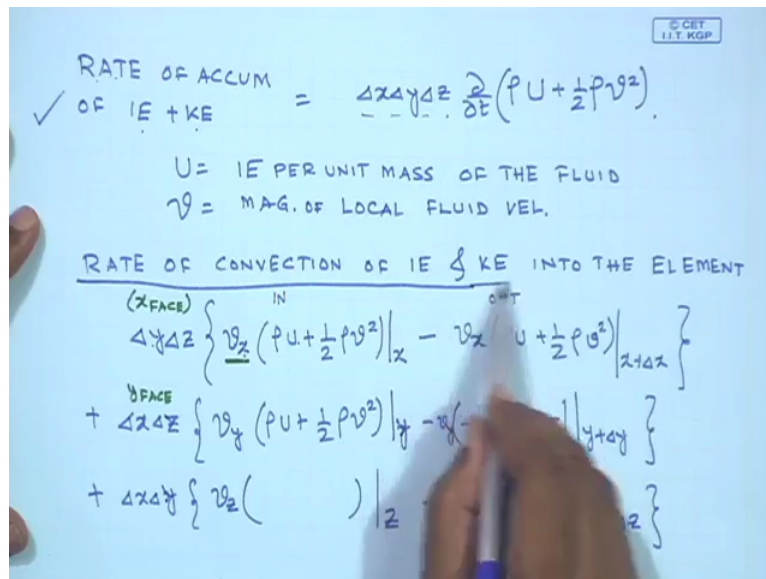 © CET
I.I.T. KGP
RATE OF ACCUM
OF IE + KE = Δx Δy Δz ∂/∂t (ρU + 1/2 ρv²).
U = IE PER UNIT MASS OF THE FLUID
v = MAG. OF LOCAL FLUID VEL.
RATE OF CONVECTION OF IE & KE INTO THE ELEMENT
(x FACE) IN OUT
Δy Δz { v_x (ρU + 1/2 ρv²)|_x − v_x U + 1/2 ρv²)|_x+Δx }
y FACE
+ Δx Δz { v_y (ρU + 1/2 ρv²)|_y − v( |_y+Δy }
+ Δx Δy { v_z ( )|_z z }